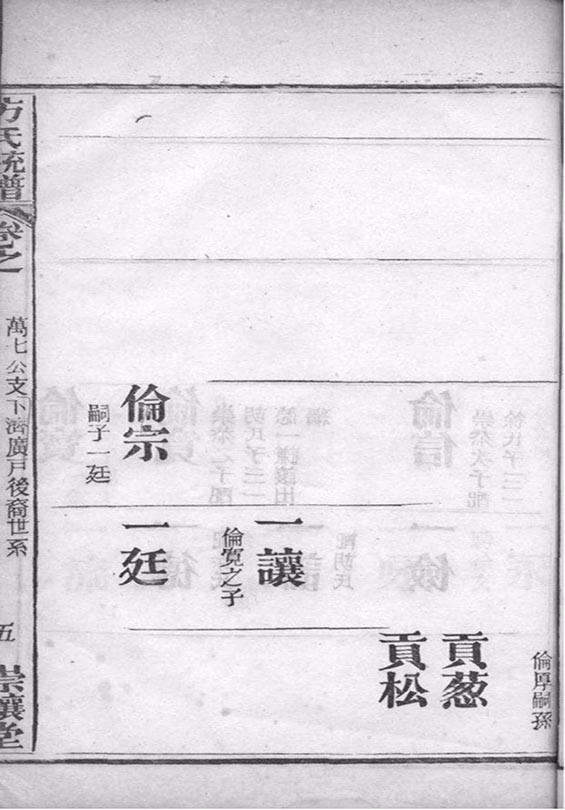 倫宗
嗣子一廷
一讓
倫寬之子
一廷
倫厚嗣孫
貢葱
貢松
方氏統譜
卷之
萬七公支下濟廣戶後裔世系
五
崇讓堂